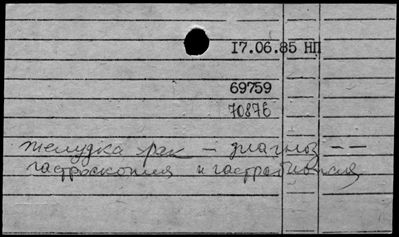 17.06.85 НП
69759
70876
желудка рак — диагноз — —
гастроскопия и гастробиопсия